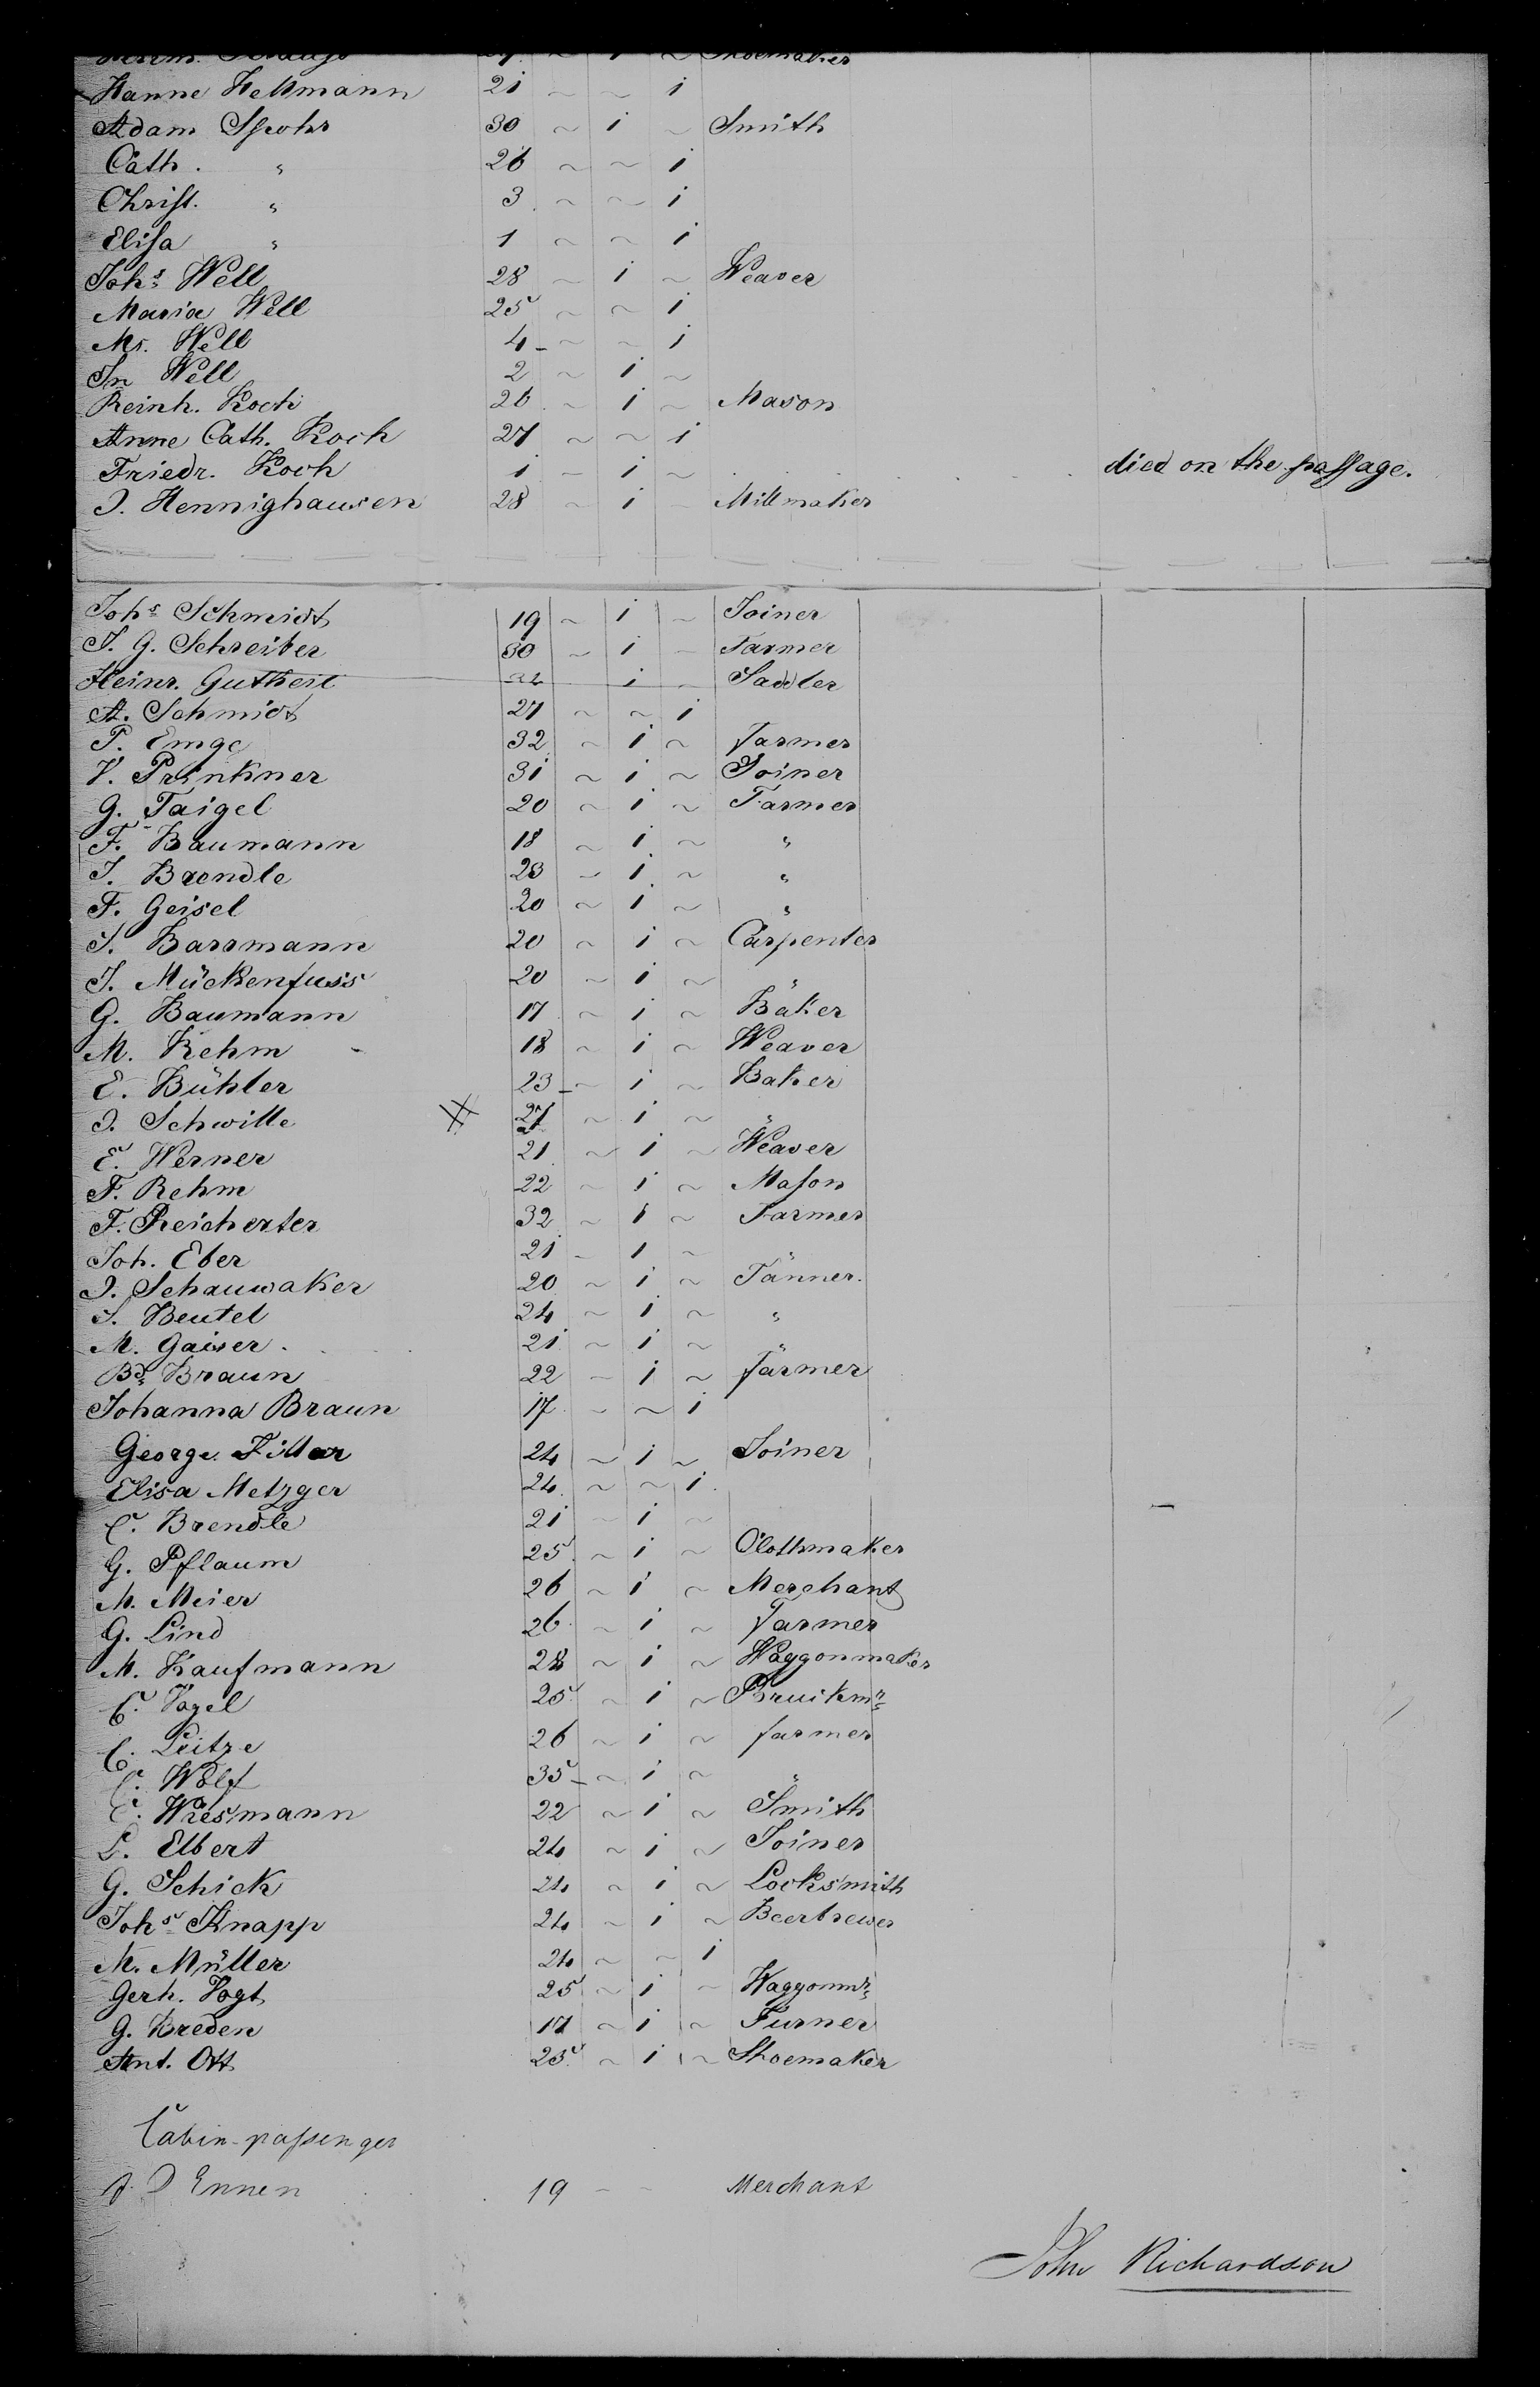 Shoemaker
Hanne Hellmann 21 ~ ~ 1
Adam Spohr 30 ~ 1 ~ Smith
Cath. " 26 ~ ~ 1
Christ. " 3 ~ ~ 1
Elisa " 1 ~ ~ 1
Johs Well 28 ~ 1 ~ Weaver
Maria Well 25 ~ ~ 1
Mr. Well 4 ~ ~ 1
Jn Well 2 ~ 1 ~
Reinh. Koch 26 ~ 1 ~ Mason
Anne Cath. Koch 27 ~ ~ 1
Friedr. Koch 1 ~ 1 ~ died on the passage.
J. Hennighausen 28 ~ 1 ~ Millmaker
Johs Schmidt 19 ~ 1 ~ Joiner
J. G. Schreiber 30 ~ 1 ~ Farmer
Heinr. Gutheil 1 ~ Sadler
A. Schmidt 27 ~ ~ 1
P. Emge 32 ~ 1 ~ Farmer
V. Prinkner 31 ~ 1 ~ Joiner
G. Taigel 20 ~ 1 ~ Farmer
F. Baumann 18 ~ 1 ~ "
J. Brendle 23 ~ 1 ~ "
F. Geisel 20 ~ 1 ~ "
J. Barrmann 20 ~ 1 ~ Carpenter
J. Mückenfuss 20 ~ 1 ~ "
G. Baumann 17 ~ 1 ~ Baker
M. Rehm 18 ~ 1 ~ Weaver
E. Bühler 23 ~ 1 ~ Baker
J. Schwille 27 ~ 1 ~ "
E. Werner 21 ~ 1 ~ Weaver
F. Rehm 22 ~ 1 ~ Mason
F. Reicherter 32 ~ 1 ~ Farmer
Joh. Eber 21 ~ 1 ~ "
J. Schauwaker 20 ~ 1 ~ Tanner.
J. Beutel 24 ~ 1 ~ "
M. Gaiser. 21 ~ 1 ~ "
Bd. Braun 22 ~ 1 ~ Farmer
Johanna Braun 17 ~ ~ 1
George Filler 24 ~ 1 ~ Joiner
Elisa Metzger 24 ~ ~ 1
C. Brendle 21 ~ 1 ~
G. Pflaum 25 ~ 1 ~ Clothmaker
M. Meier 26 ~ 1 ~ Merchant
G. Lind 26 ~ 1 ~ Farmer
M. Kaufmann 28 ~ 1 ~ Waggonmaker
C. Vogel 25 ~ 1 ~
C. Leitze 26 ~ 1 ~ farmer
C. Wolf 35 ~ 1 ~ "
C. Wiesmann 22 ~ 1 ~ Smith
L. Elbert 24 ~ 1 ~ Joiner
G. Schick 24 ~ 1 ~ Locksmith
Johs Knapp 24 ~ 1 ~ Beerbrewer
M. Müller 24 ~ ~ 1
Gerh. Vogt 25 ~ 1 ~ Waggonmr
G. Breden 17 ~ 1 ~ Turner
Ant. Ott 25 ~ 1 ~ Shoemaker
Cabin-passenger
Ennen 19 - - Merchant
John Richardson